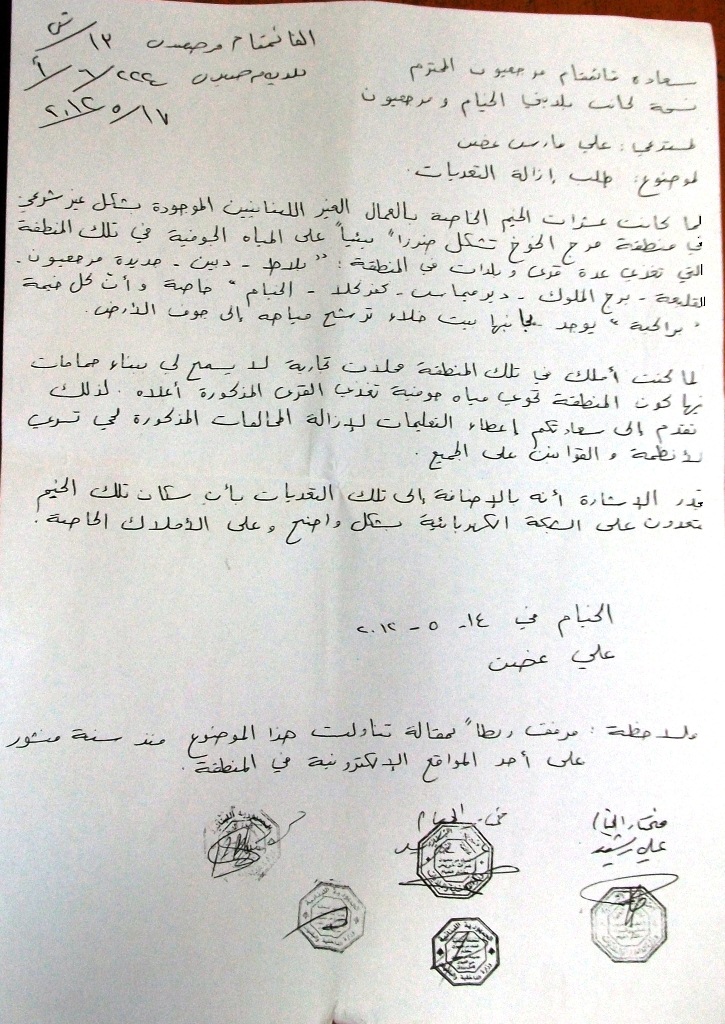 القائمقام مرجعيون ١٣/ش
بلدية مرجعيون ٢٢٤/٦/أ
٢٠١٢/٥/١٧
سعادة قائمقام مرجعيون المحترم
نسخة لجانب بلديتي الخيام و مرجعيون
لمستدعي: علي فارس غصن
لموضوع: طلب إزالة التعديات.
لما كانت عشرات الخيم الخاصة بالعمال الغير اللبنانيين الموجودة بشكل غير شرعي
في منطقة مرج الخوخ تشكل ضرراً بيئياً على المياه الجوفية في تلك المنطقة
التي تغذي عدة قرى و بلدات في المنطقة: "بلاط - دبين - جديدة مرجعيون -
القليعة - برج الملوك - ديرميماس - كفركلا - الخيام" خاصة و أن كل خيمة
"براكية" يوجد بجانبها بيت خلاء ترشح مياهه إلى جوف الأرض.
لما كنت أملك في تلك المنطقة محلات تجارية لا يسمح لي ببناء حمامات
فيها كون المنطقة تحوي مياه جوفية تغذي القرى المذكورة أعلاه. لذلك
نتقدم إلى سعادتكم إعطاء التعليمات لإزالة المخالفات المذكورة لكي تسري
لأنظمة و القوانين على الجميع.
تجدر الإشارة أنه بالإضافة إلى تلك التعديات بأن سكان تلك الخيم
يتعدون على الشبكة الكهربائية بشكل واضح وعلى الأملاك الخاصة.
الخيام في ١٤ - ٥ - ٢٠١٢
علي غصن
ملاحظة: مرفق ربطاً بمقالة تناولت هذا الموضوع منذ سنة منشور
على أحد المواقع الإلكترونية في المنطقة.
مختار الخيام
علي رشيد
مختار الخيام
الجمهورية اللبنانية